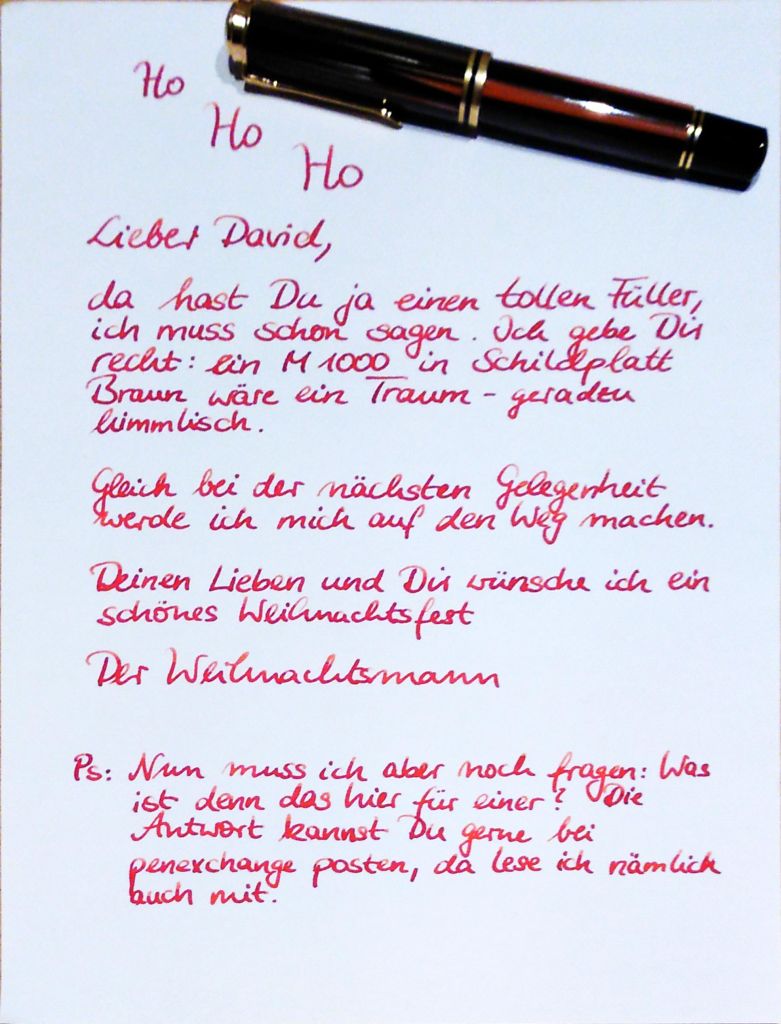 Ho
Ho
Ho
Lieber David,
da hast Du ja einen tollen Füller,
ich muss schon sagen. Ich gebe Dir
recht: ein M 1000 in Schildplatt
Braun wäre ein Traum - geradezu
himmlisch.
Gleich bei der nächsten Gelegenheit
werde ich mich auf den Weg machen.
Deinen Lieben und Dir wünsche ich ein
schönes Weihnachtsfest
Der Weihnachtsmann
Ps: Nun muss ich aber noch fragen: Was
ist denn das hier für einer? Die
Antwort kannst Du gerne bei
penexchange posten, da lese ich nämlich
auch mit.